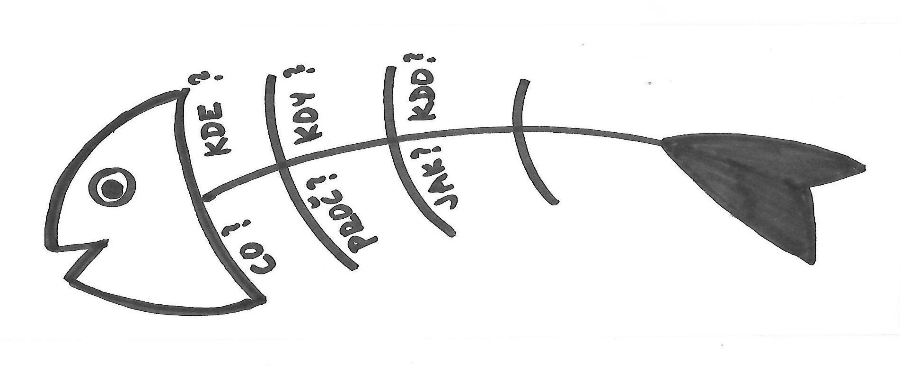 KDE?
KDY?
KDO?
CO?
PROČ?
JAK?